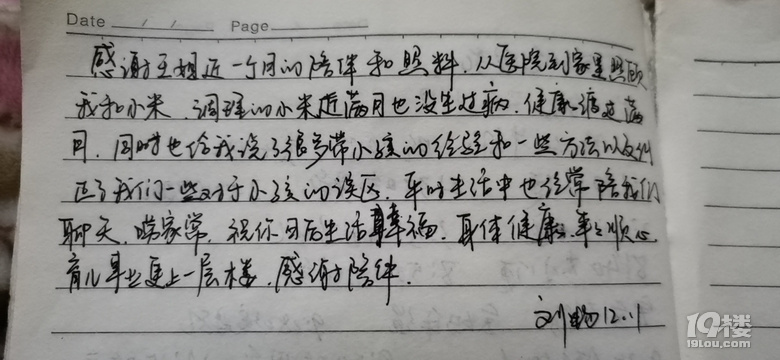 Date / / Page
感谢王姐近一个月的陪伴和照料.从医院到家里照顾
我和小米.调理的小米近满月也没生过病.健康渡过满
月.同时也给我说了很多带小孩的经验和一些方法以及纠
正了我们一些对于小孩的误区.平时生活中也经常陪我们
聊天.唠家常.祝你日后生活幸福.身体健康.事事顺心
育儿事业更上一层楼.感谢陪伴.
刘畅12.11
19楼
19lou.com